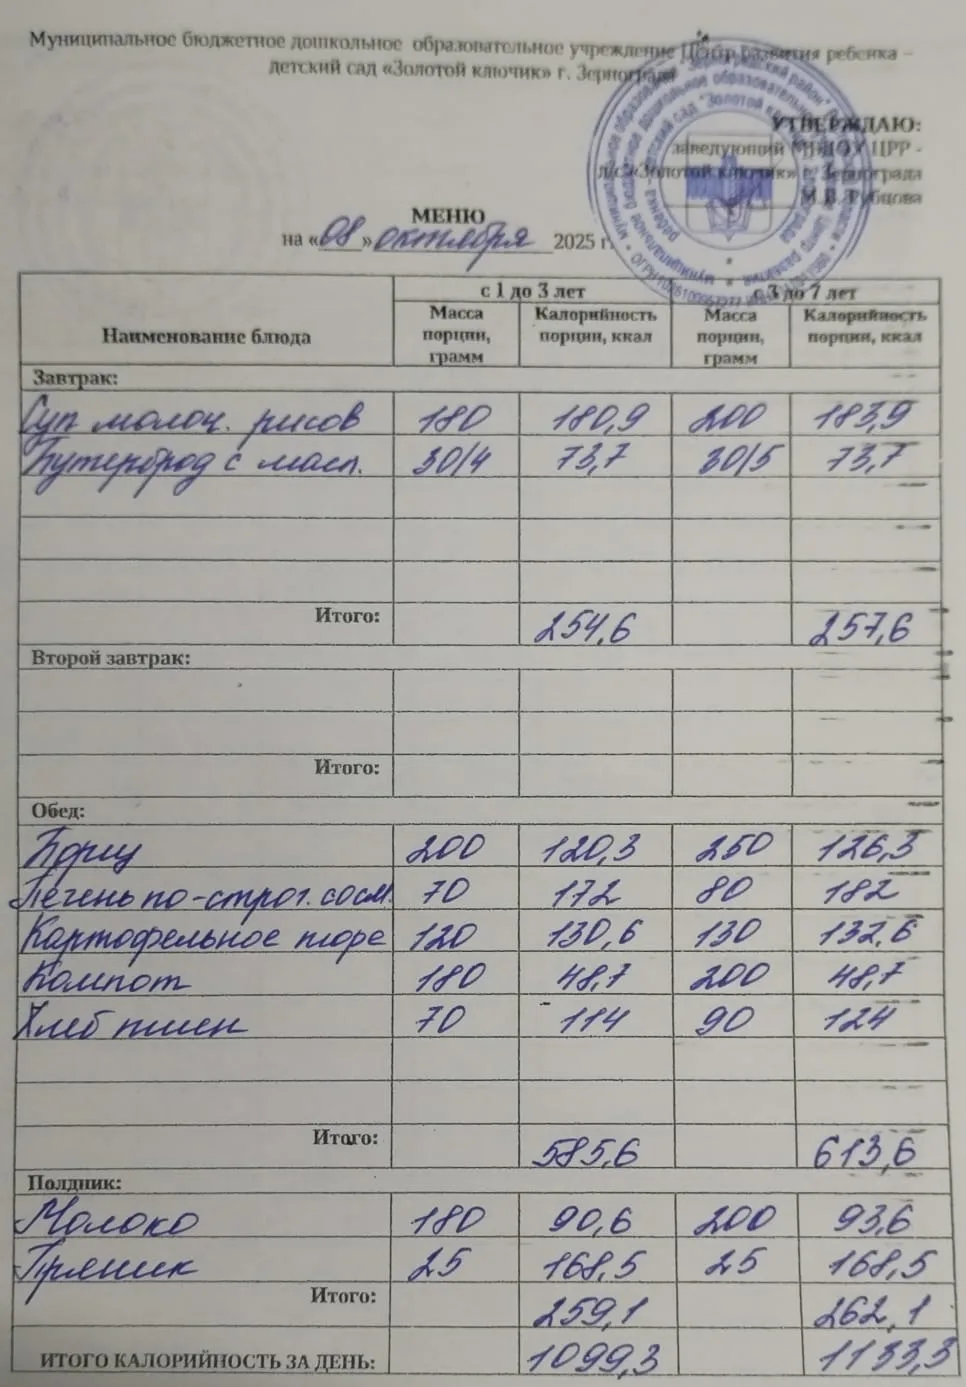 Муниципальное бюджетное дошкольное образовательное учреждение Центр развития ребенка –
детский сад «Золотой ключик» г. Зернограда
УТВЕРЖДАЮ:
заведующий МБДОУ ЦРР -
д/с «Золотой ключик» г. Зернограда
М.В. Рубцова
МЕНЮ
на «08» октября 2025 г.
Наименование блюда
с 1 до 3 лет с 3 до 7 лет
Масса порции, грамм Калорийность порции, ккал Масса порции, грамм Калорийность порции, ккал
Завтрак:
Суп молоч. рисов 180 180,9 200 183,9
Бутерброд с масл. 30/4 73,7 30/5 73,7
Итого: 254,6 257,6
Второй завтрак:
Итого:
Обед:
Борщ 200 120,3 250 126,3
Печень по-строг. 70 172 80 182
Картофельное пюре 120 130,6 130 132,6
Компот 180 48,7 200 48,7
Хлеб пшен 70 114 90 124
Итого: 585,6 613,6
Полдник:
Молоко 180 90,6 200 93,6
Пряник 25 168,5 25 168,5
Итого: 259,1 262,1
ИТОГО КАЛОРИЙНОСТЬ ЗА ДЕНЬ: 1099,3 1133,3